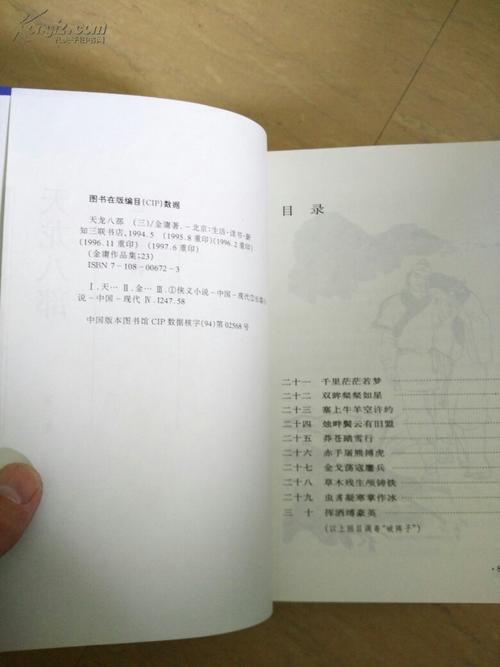 图书在版编目(CIP)数据
天龙八部 (三)/金庸著.-北京:生活·读书·新
知三联书店,1994.5 (1995.8重印)(1996.2重印)
(1996.11重印) (1997.6重印)
(金庸作品集;23)
ISBN 7-108-00672-3
Ⅰ.天… Ⅱ.金… Ⅲ.①侠义小说-中国-现代②
说-中国-现代 Ⅳ.I247.58
中国版本图书馆CIP数据核字(94)第02568号
目 录
二十一 千里茫茫若梦
二十二 双眸粲粲如星
二十三 塞上牛羊空许约
二十四 烛畔鬓云有旧盟
二十五 莽苍踏雪行
二十六 赤手屠熊搏虎
二十七 金戈荡寇鏖兵
二十八 草木残生颅铸铁
二十九 虫豸凝寒掌作冰
三 十 挥洒缚豪英
(以上回目调寄“破阵子”)